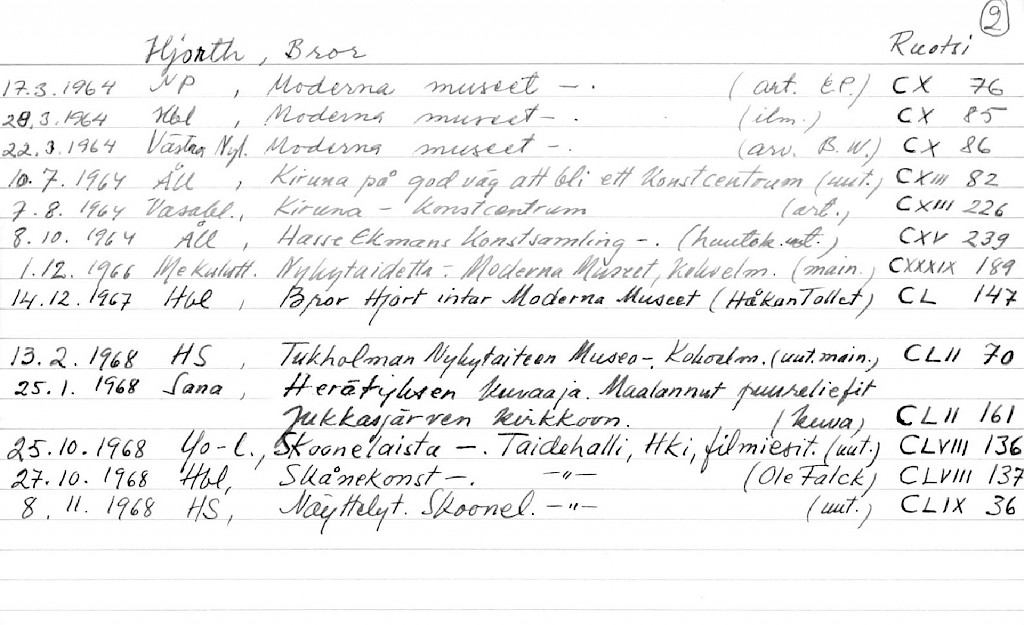 2
Hjorth, Bror Ruotsi
17.3.1964 NP, Moderna museet -. (art. E.P.) CX 76
28.3.1964 Hbl, Moderna museet -. (ilm.) CX 85
22.3.1964 Västra Nyl. Moderna museet -. (arv. B.W.) CX 86
10.7.1964 Åll, Kiruna på god väg att bli ett konstcentrum (uut.) CXIII 82
7.8.1964 Vasabl., Kiruna - konstcentrum (art.) CXIII 226
8.10.1964 Åll, Hasse Ekmans konstsamling -. (huutok. uut.) CXV 239
1.12.1966 Me kulutt. Nykytaidetta - Moderna Museet, kokoelm. (main.) CXXXIX 189
14.12.1967 Hbl, Bror Hjort intar Moderna Museet (Håkan Tollet) CL 147
13.2.1968 HS, Tukholman Nykytaiteen Museo -, Kokoelm. (uut. main.) CLII 70
25.1.1968 Sana, Herätyksen kuvaaja. Maalannut puureliefit
Jukkasjärven kirkkoon. (kuva) CLII 161
25.10.1968 Yo-l., Skoonelaista -. Taidehalli, Hki, filmiesit. (uut.) CLVIII 136
27.10.1968 Hbl, Skånekonst -. -"- (Ole Falck) CLVIII 137
8.11.1968 HS, Näyttelyt. Skoonel. -"- (uut.) CLIX 36